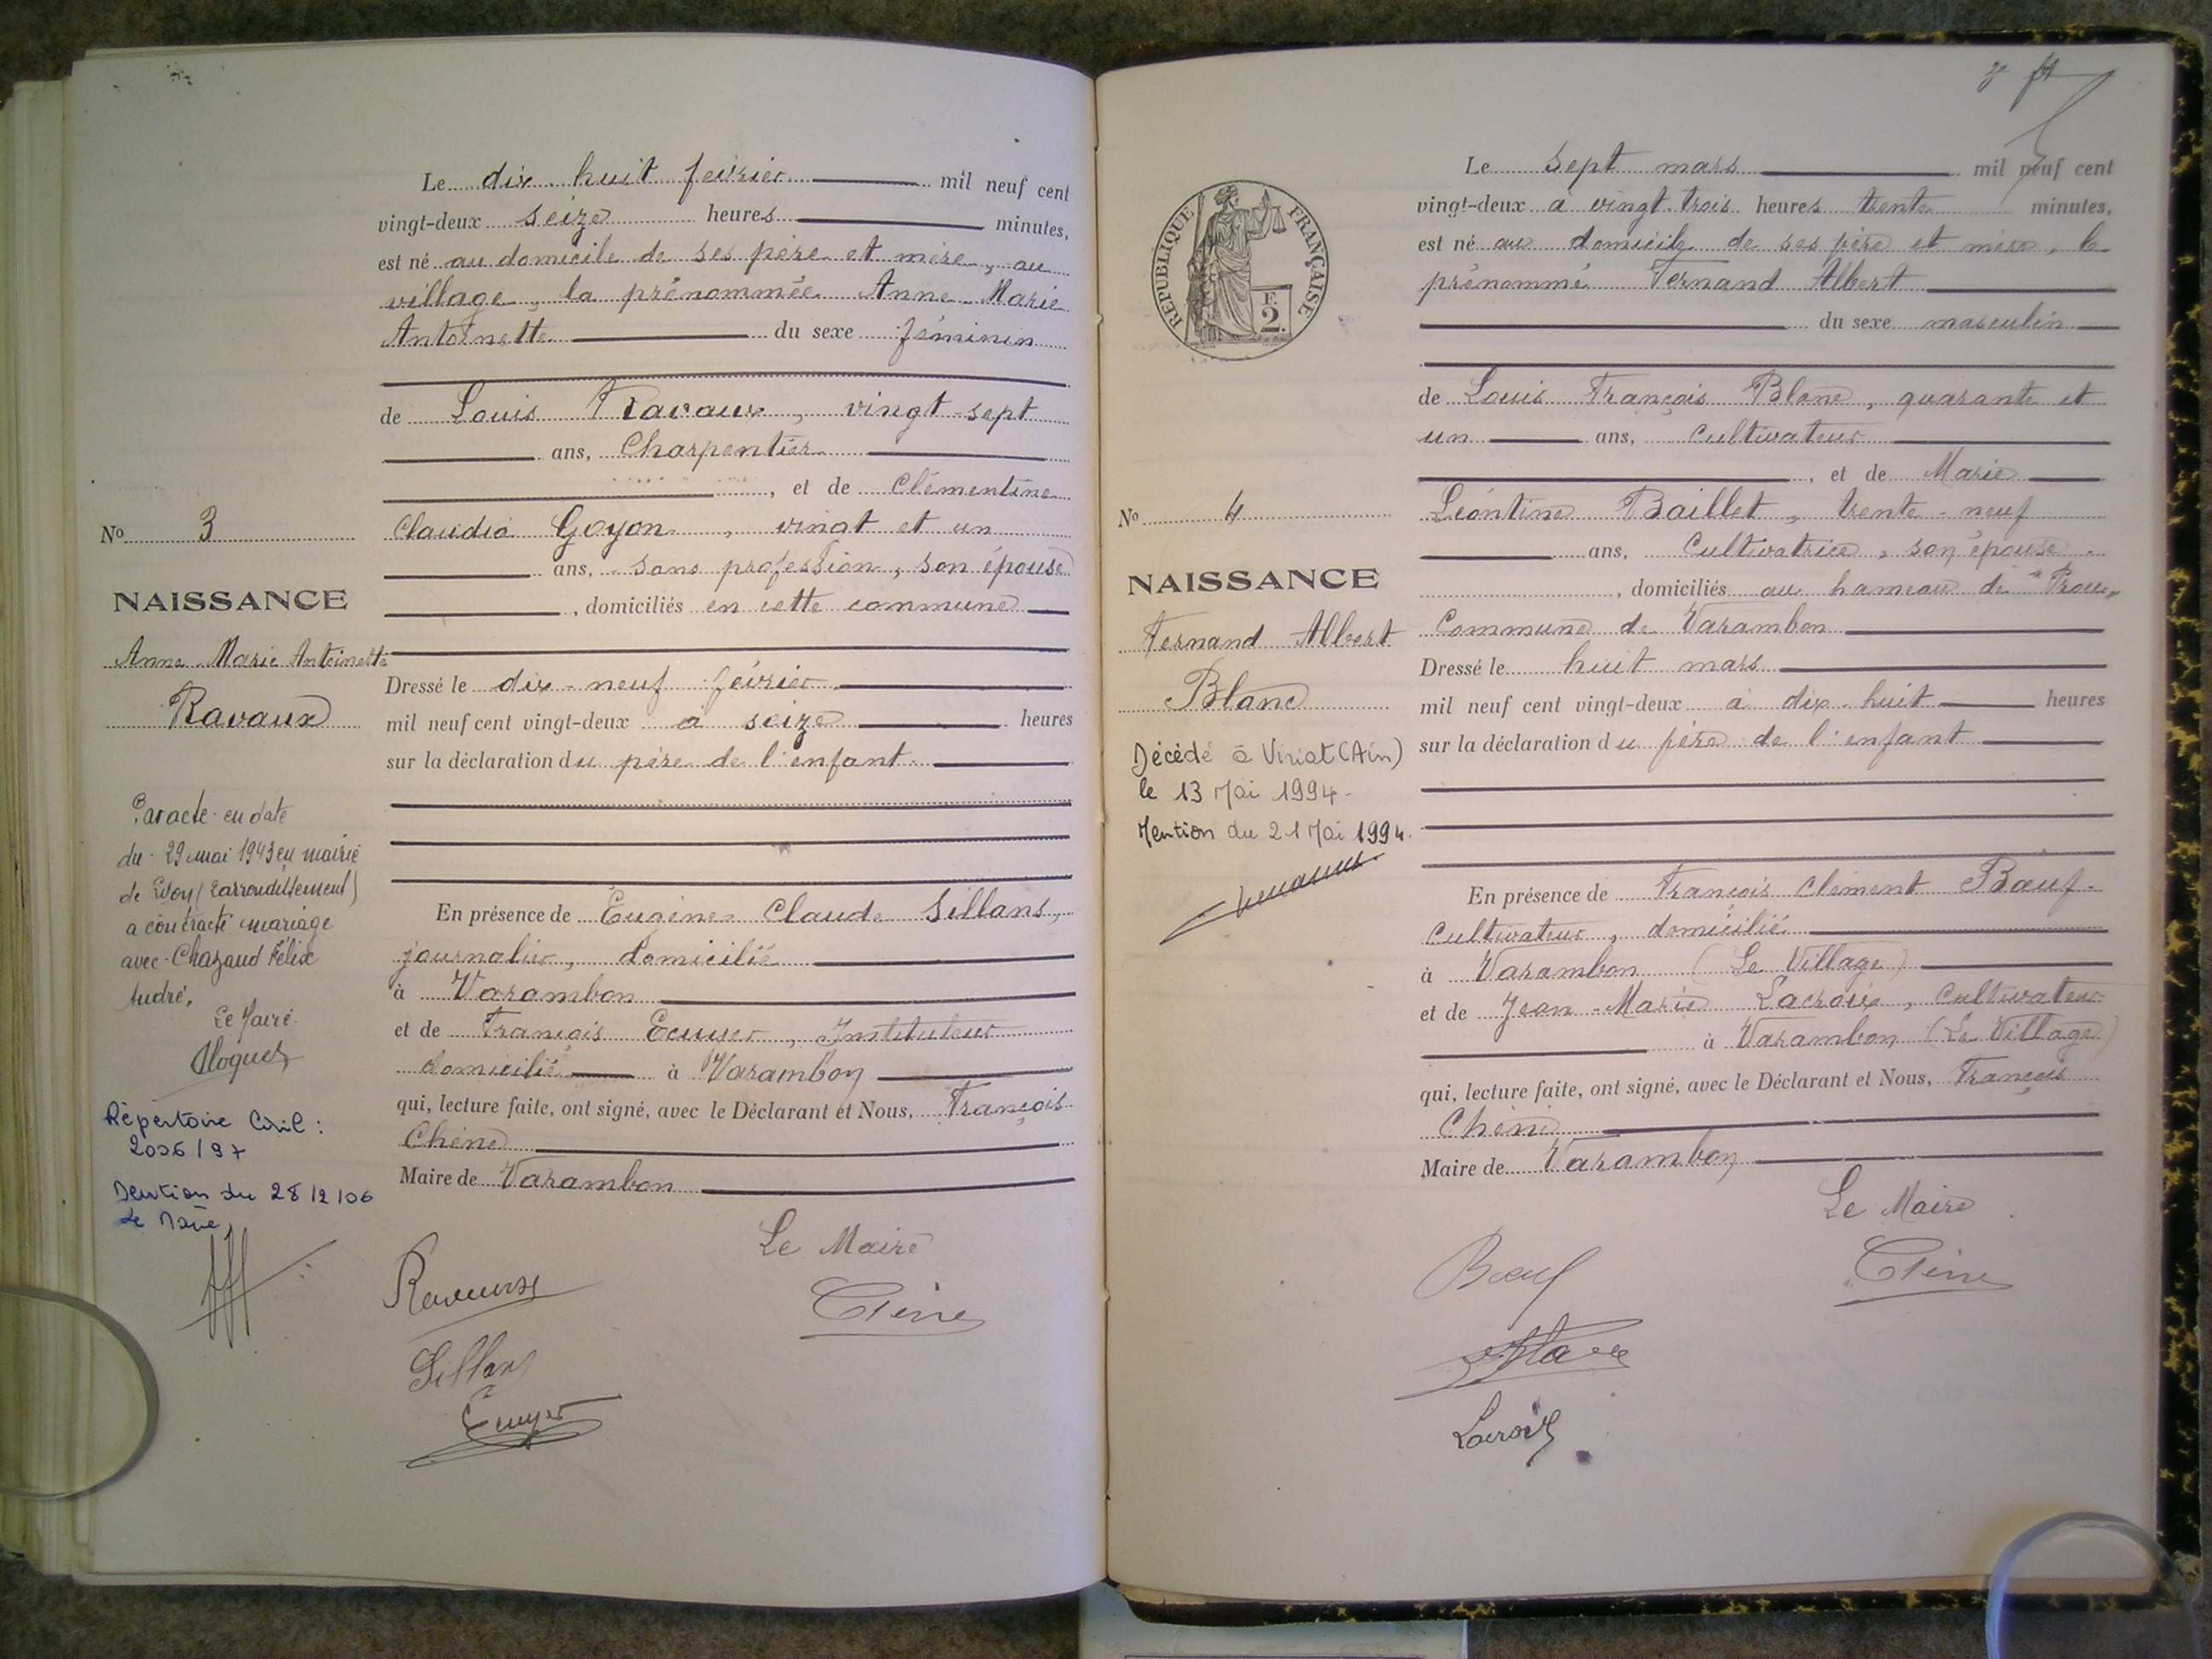 Le dix-huit février mil neuf cent
vingt-deux seize heures minutes,
est né au domicile de ses père et mère, au
village, la prénommée Anne-Marie
Antoinette du sexe féminin
de Louis Ravaux, vingt-sept
ans, Charpentier
, et de Clémentine
Claudia Goyon, vingt et un
ans, sans profession, son épouse
, domiciliés en cette commune
Dressé le dix-neuf février
mil neuf cent vingt-deux à seize heures
sur la déclaration du père de l'enfant
En présence de Eugène Claude Sillans,
journalier, domicilié
à Varambon
et de François Ecuyer, Instituteur
domicilié à Varambon
qui, lecture faite, ont signé, avec le Déclarant et Nous, François
Chêne
Maire de Varambon
Le Maire
Ravaux
Chêne
Sillans
Ecuyer
No 3
NAISSANCE
Anne-Marie Antoinette
Ravaux
Par acte en date
du 29 mai 1943 en mairie
de Lyon (2 arrondissement)
a contracté mariage
avec Chazaud Félix
André.
Le Maire
Répertoire Civil :
2006/97
Mention du 28/2/06
Le Maire
Le sept mars mil neuf cent
vingt-deux à vingt-trois heures trente minutes,
est né au domicile de ses père et mère, le
prénommé Fernand Albert
du sexe masculin
de Louis François Blanc, quarante et
un ans, Cultivateur
, et de Marie
Léontine Baillet, trente-neuf
ans, Cultivatrice, son épouse
, domiciliés au hameau de
Commune de Varambon
Dressé le huit mars
mil neuf cent vingt-deux à dix-huit heures
sur la déclaration du père de l'enfant
En présence de François Clément Bœuf
Cultivateur, domicilié
à Varambon (Le Village)
et de Jean-Marie Lacroix, Cultivateur
à Varambon (Le Village)
qui, lecture faite, ont signé, avec le Déclarant et Nous, François
Chêne
Maire de Varambon
Le Maire
Bœuf
Chêne
Lacroix
RÉPUBLIQUE FRANÇAISE
F.
2.
No 4
NAISSANCE
Fernand Albert
Blanc
Décédé à Viriat (Ain)
le 13 Mai 1994.
Mention du 21 Mai 1994.